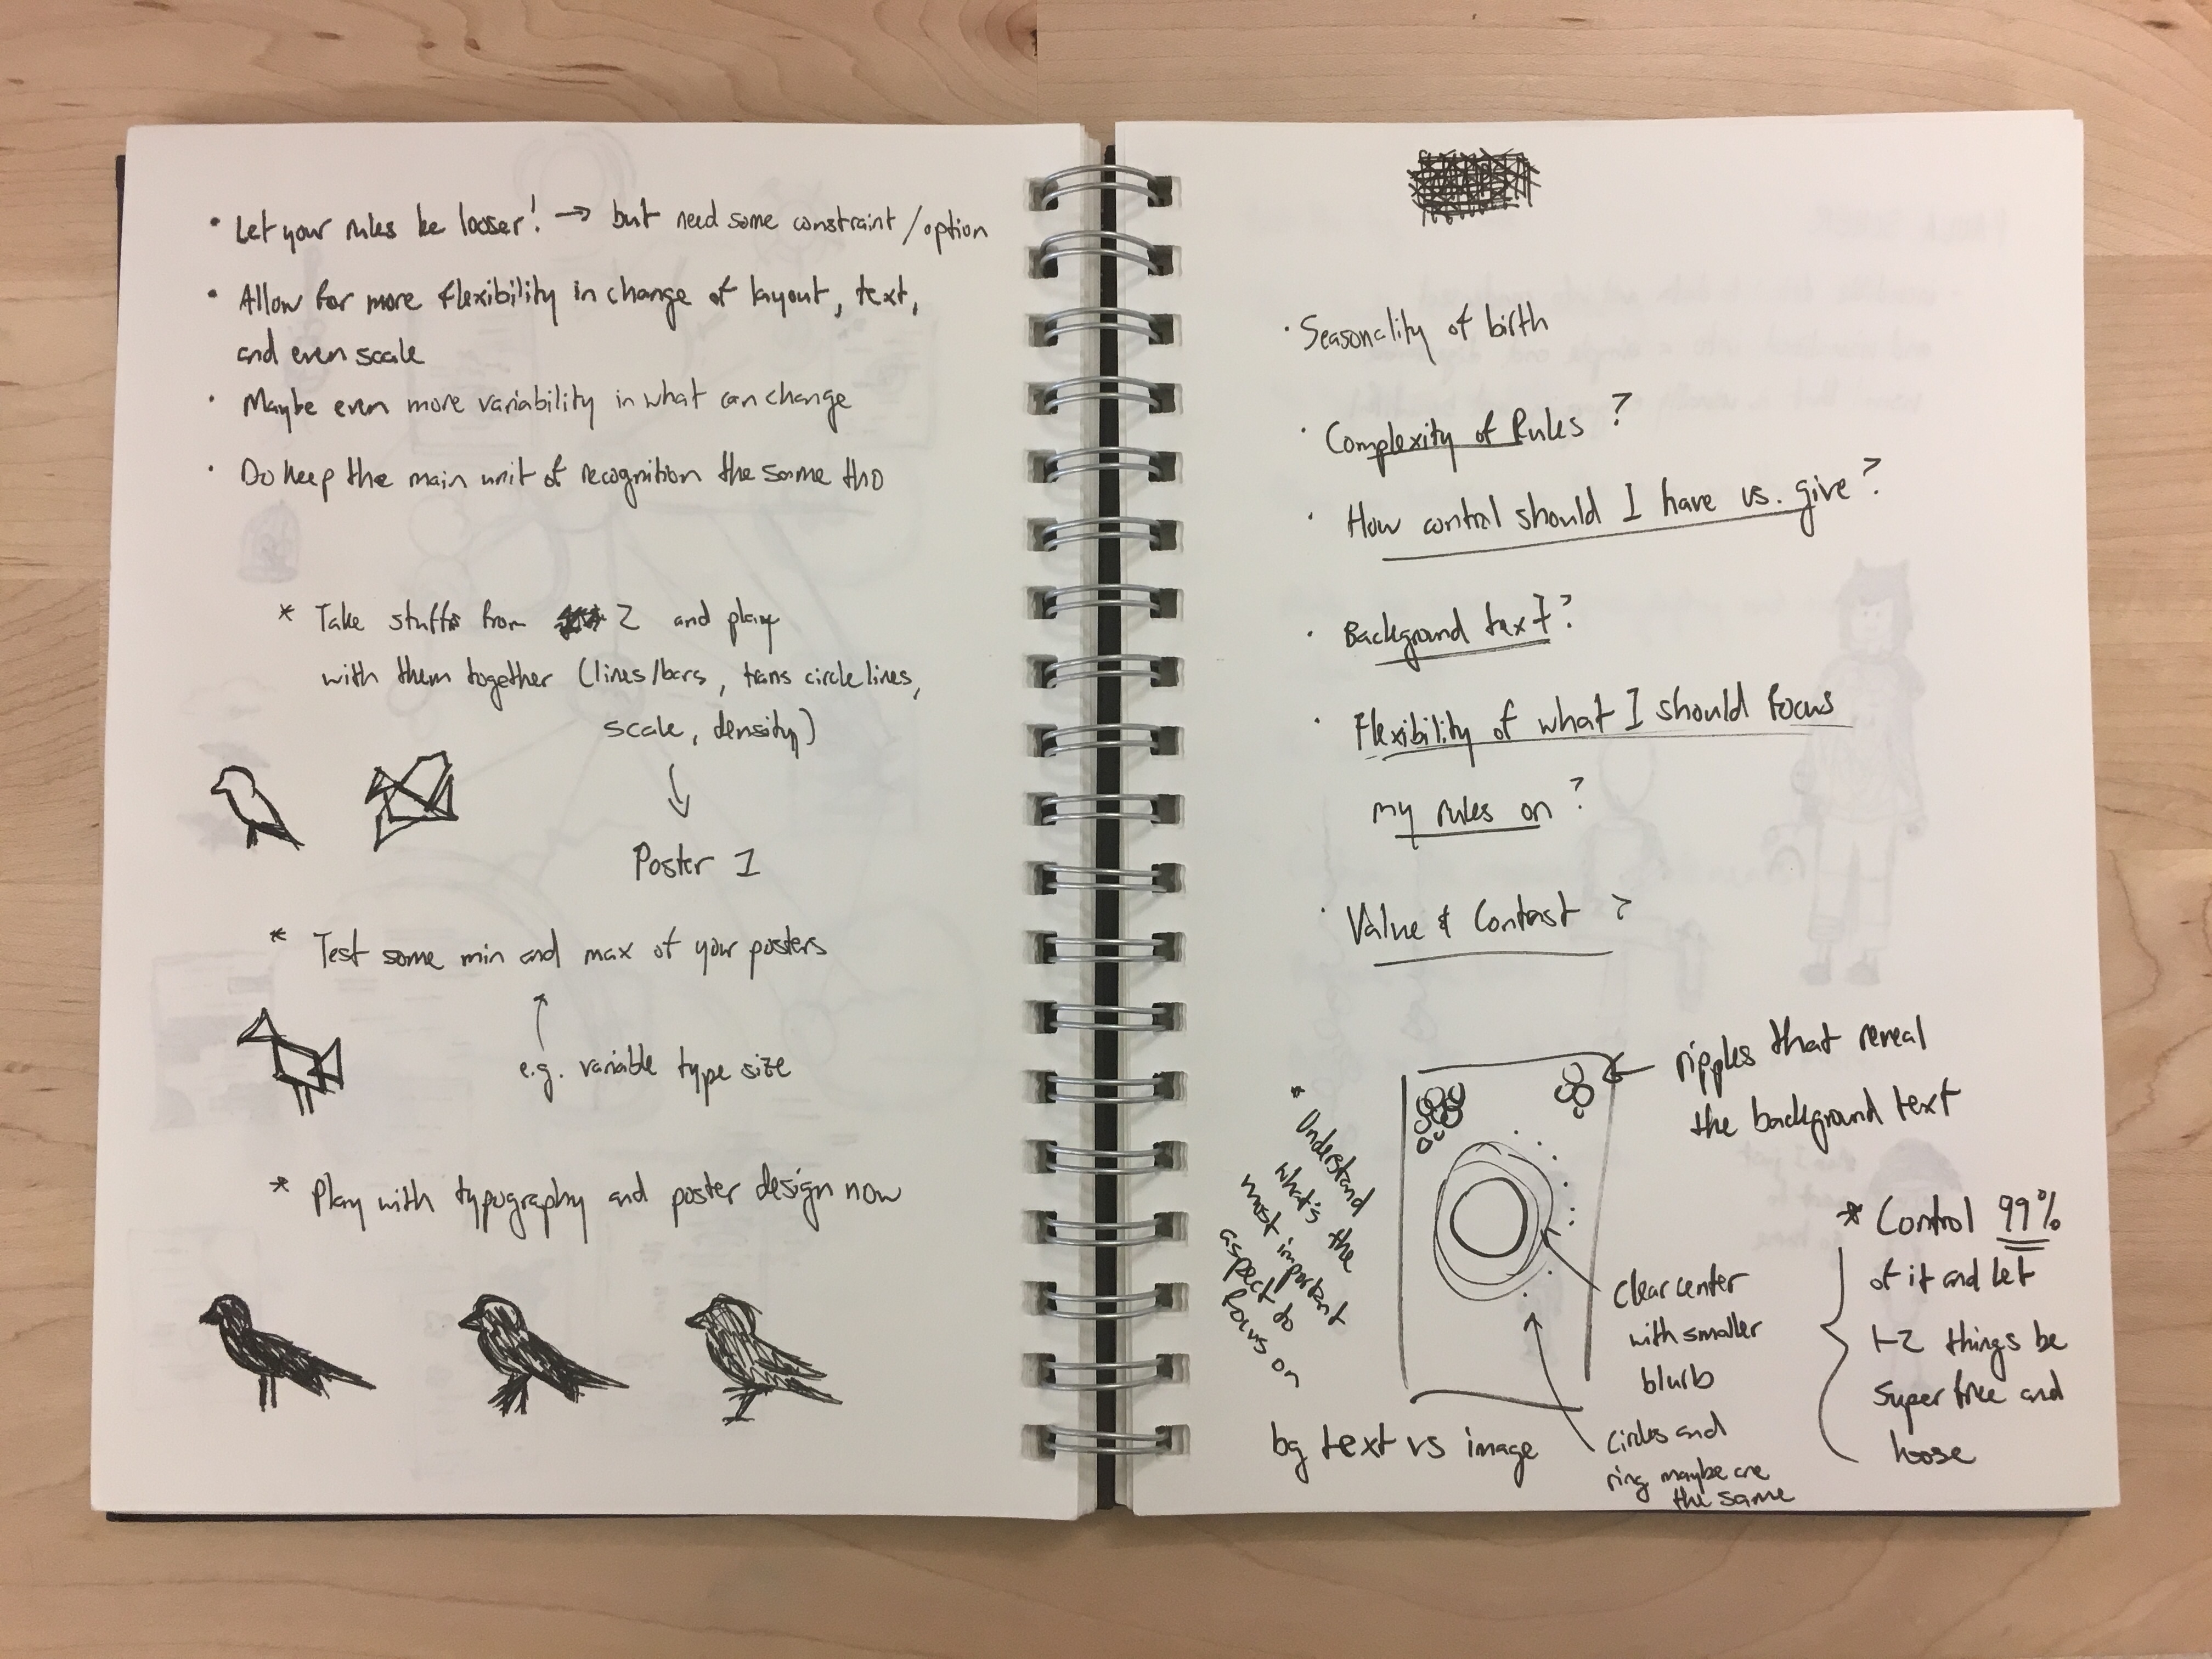 • Let your rules be looser! → but need some constraint/option
• Allow for more flexibility in change of layout, text,
and even scale
• Maybe even more variability in what can change
• Do keep the main unit of recognition the same tho
* Take stuffs from 2 and play
with them together (lines/bars, trans circle lines,
scale, density)
↓
Poster 1
* Test some min and max of your posters
↑
e.g. variable type size
* Play with typography and poster design now
• Seasonality of birth
• Complexity of Rules ?
• How control should I have vs. give?
• Background text?
• Flexibility of what I should focus
my rules on ?
• Value & Contast ?
← ripples that reveal
the background text
* Understand
what's the
most important
aspect to
focus on
clear center
with smaller
blurb
circles and
ring maybe are
the same
bg text vs image
* Control 99%
of it and let
1-2 things be
super free and
loose